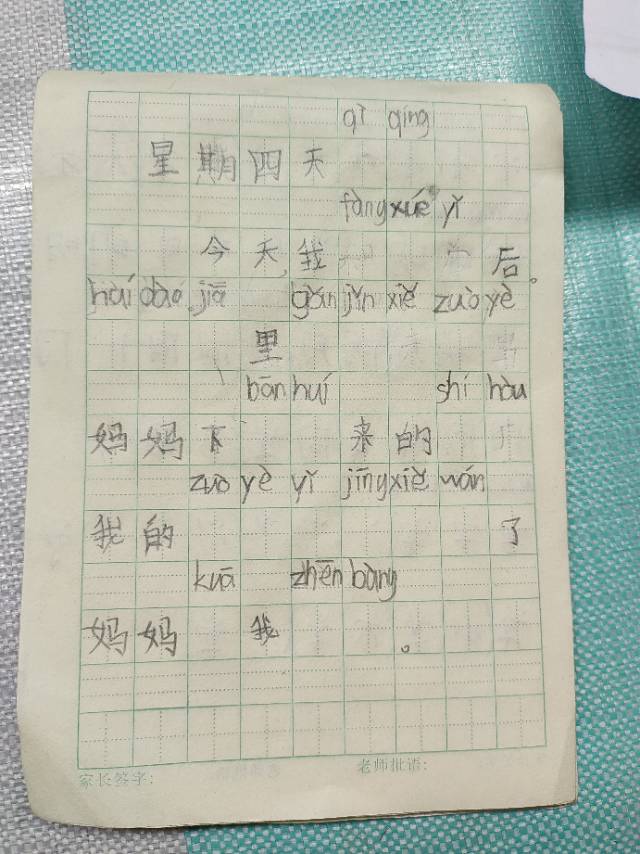 qī qíng
星期四天
fàng xué yǐ
今天,我后。
huí dào jiā gǎn jǐn xiě zuò yè
里
bān huí shí hòu
妈妈下来的
zuo yè yǐ jīng xiě wán
我的了
kuā zhēn bàng
妈妈我。
家长签字: 老师批语: